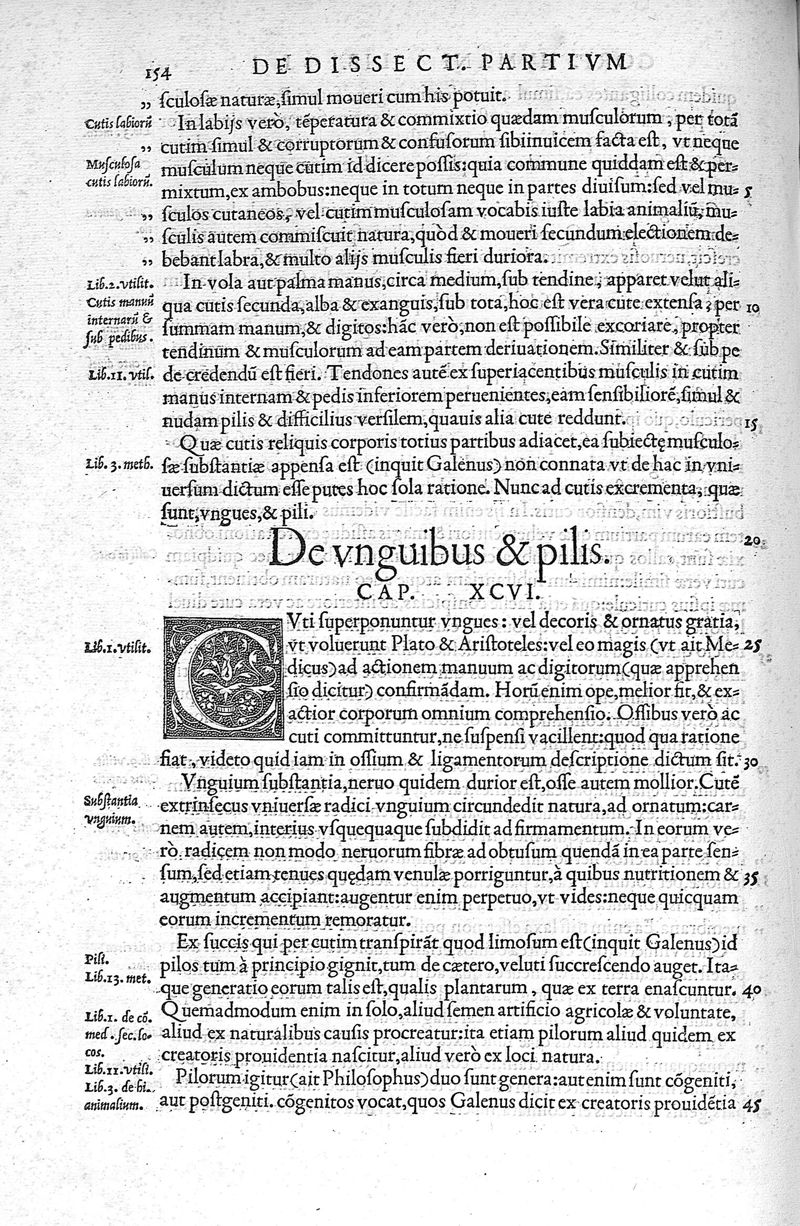 154 DE DISSECT. PARTIVM
„ ſculoſæ naturæ, ſimul moueri cum his potuit.
Cutis labiorũ In labijs verò, tẽperatura & commixtio quædam muſculorum, per totã
„ cutim ſimul & corruptorum & confuſorum ſibiinuicem facta eſt, vt neque
Muſculoſa muſculum neque cutim id dicere poſſis: quia commune quiddam eſt & per-
cutis labiorũ. mixtum, ex ambobus: neque in totum neque in partes diuiſum: ſed vel mu- 5
„ ſculos cutaneos, vel cutim muſculoſam vocabis iuſte labia animaliũ, mu-
„ ſculis autem commiſcuit natura, quòd & moueri ſecundum electionem de-
„ bebant labra, & multo alijs muſculis fieri duriora.
Lib. 2. vtilit. In vola aut palma manus, circa medium, ſub tendine, apparet velut ali-
Cutis manuũ qua cutis ſecunda, alba & exanguis, ſub tota, hoc eſt vera cute extenſa, per 10
internarũ & ſummam manum, & digitos: hãc verò, non eſt poſſibile excoriare, propter
ſub pedibus. tendinum & muſculorum ad eam partem deriuationem. Similiter & ſub pe
Lib. 11. vtiſ. de credendũ eſt fieri. Tendones autẽ ex ſuperiacentibus muſculis in cutim
manus internam & pedis inferiorem peruenientes, eam ſenſibiliorẽ, ſimul &
nudam pilis & difficilius verſilem, quauis alia cute reddunt. 15
Quæ cutis reliquis corporis totius partibus adiacet, ea ſubiectę muſculo-
Lib. 3. meth. ſæ ſubſtantiæ appenſa eſt (inquit Galenus) non connata vt de hac in vni-
uerſum dictum eſſe putes hoc ſola ratione. Nunc ad cutis excrementa, quæ
ſunt, vngues, & pili.
De vnguibus & pilis. 20
CAP. XCVI.
CVti ſuperponuntur vngues: vel decoris & ornatus gratia,
Lib. 1. vtilit. vt voluerunt Plato & Ariſtoteles: vel eo magis (vt ait Me- 25
dicus) ad actionem manuum ac digitorum (quæ apprehen
ſio dicitur) confirmãdam. Horũ enim ope, melior fit, & ex-
actior corporum omnium comprehenſio. Oſſibus verò ac
cuti committuntur, ne ſuſpenſi vacillent: quod qua ratione
fiat, videto quid iam in oſſium & ligamentorum deſcriptione dictum ſit. 30
Vnguium ſubſtantia, neruo quidem durior eſt, oſſe autem mollior. Cutẽ
Subſtantia extrinſecus vniuerſæ radici vnguium circundedit natura, ad ornatum: car-
vnguium. nem autem, interius vſquequaque ſubdidit ad firmamentum. In eorum ve-
rò radicem non modo neruorum fibræ ad obtuſum quendã in ea parte ſen-
ſum, ſed etiam tenues quędam venulæ porriguntur, à quibus nutritionem & 35
augmentum accipiant: augentur enim perpetuo, vt vides: neque quicquam
eorum incrementum remoratur.
Ex ſuccis qui per cutim tranſpirãt quod limoſum eſt (inquit Galenus) id
Piſi. pilos tum à principio gignit, tum de cætero, veluti ſuccreſcendo auget. Ita-
Lib. 13. met. que generatio eorum talis eſt, qualis plantarum, quæ ex terra enaſcuntur. 40
Lib. 1. de cõ. Quemadmodum enim in ſolo, aliud ſemen artificio agricolæ & voluntate,
med. ſec. lo- aliud ex naturalibus cauſis procreatur: ita etiam pilorum aliud quidem ex
cos. creatoris prouidentia naſcitur, aliud verò ex loci natura.
Lib. 11. vtiſi. Pilorum igitur (ait Philoſophus) duo ſunt genera: aut enim ſunt cõgeniti,
Lib. 3. de hi.
animalium. aut poſtgeniti. cõgenitos vocat, quos Galenus dicit ex creatoris prouidẽtia 45